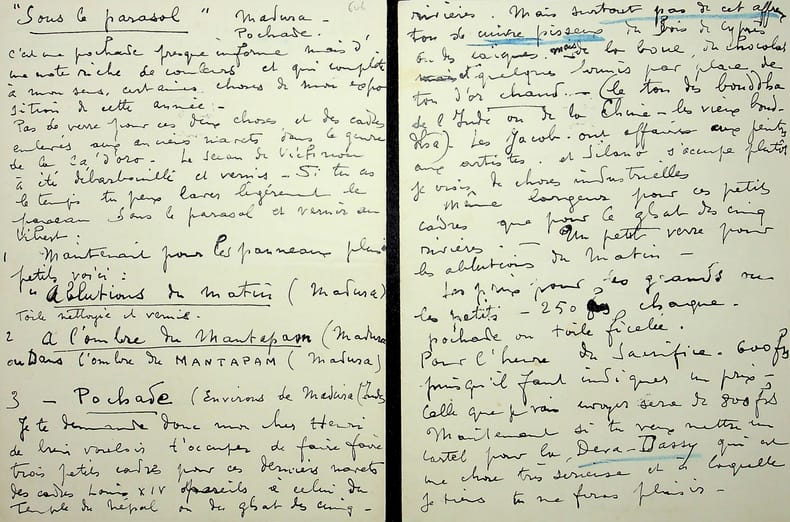 "Sous le parasol" Madura -
Pochade.
c'est une pochade presque informe mais d'
une note riche de couleurs et qui complète
à mon sens, certaines choses de mon expo
sition de cette année -
Pas de verre pour ces deux choses et des cadres
aux anciens marets dans le genre
de la Ca' d'oro - Le
a été débarbouillé et vernis - Si tu as
le temps tu peux laver légèrement le
panneau sous le parasol et vernir au
Vibert :
Maintenant pour les panneaux plus
petits voici :
1 "Ablutions du matin (Madura)
Toile nettoyée et vernie.
2 A l'ombre du Mantapam (Madura
ou Dans l'ombre du MANTAPAM (Madura)
3 - Pochade (Environs de Madura (Indes
Je te demande donc mon cher Henri
de bien vouloir t'occuper de faire faire
trois petits cadres pour ces derniers
des cadres Louis XIV pareils à celui du
Temple du Népal ou du ghat des cinq -
rivières. Mais surtout pas de cet affreux
ton de cuivre pisseux du Bois de Cyprès
ou des caïques mais de la boue, du chocolat
et quelques par place de
ton d'or chaud - (le ton des bouddha
de l'Inde ou de la Chine - les vieux boud-
dha) - Les Jacob ont affaire aux peintres
aux artistes. et Silano s'occupe plutôt
je crois de choses industrielles
Même largeur pour ces petits
cadres que pour le ghat des cinq
rivières. - Un petit verre pour
les ablutions du matin -
Les prix pour grands ou
les petits - 250 fs chaque -
pochade ou toile ficelée.
Pour l'heure du Sacrifice - 600 fs
puisqu'il faut indiquer un prix -
Celle que je vais envoyer sera de 800 fs
Maintenant si tu veux mettre un
cartel pour la Deva-Dassy qui est
une chose très sérieuse et à laquelle
je tiens tu me feras plaisir -